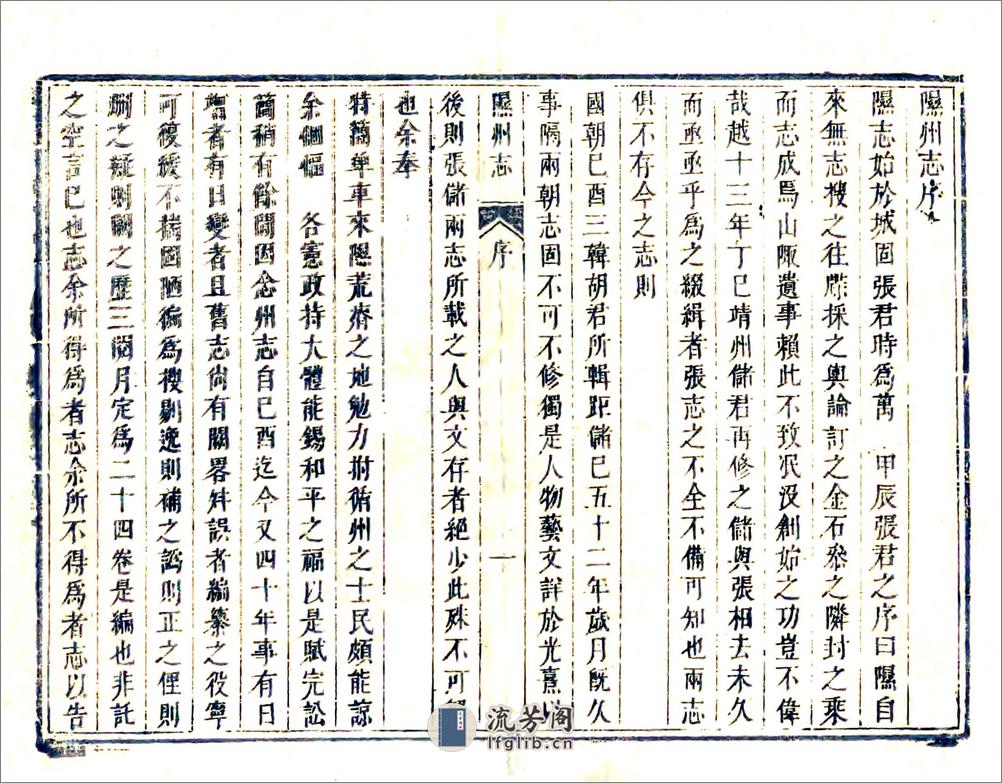 隰州志序
隰志始於城固張君時為萬 甲辰張君之序曰隰自
來無志搜之往牒採之輿論訂之金石叅之隣封之乘
而志成焉山陬遺事賴此不致泯沒創始之功豈不偉
哉越十三年丁巳靖州儲君再修之儲與張相去未久
而亟亟乎為之綴緝者張志之不全不備可知也兩志
俱不存今之志則
國朝己酉三韓胡君所輯距儲已五十二年歲月旣久
事隔兩朝志固不可不修獨是人物藝文詳於光熹
隰州志
序
一
後則張儲兩志所載之人與文存者絕少此殊不可解
也余奉
特簡單車來隰荒瘠之地勉力拊循州之士民頗能諒
余悃愊 各憲政持大體能錫和平之福以是賦完訟
簡稍有餘閒因念州志自己酉迄今又四十年事有日
增者有日變者且舊志尙有闕畧舛誤者編纂之役寧
可復緩不揣固陋徧為搜剔逸則補之譌則正之俚則
刪之疑則闕之歷三閱月定為二十四卷是編也非託
之空言已也志余所得為者志余所不得為者志以告
流芳阁
lfglib.cn